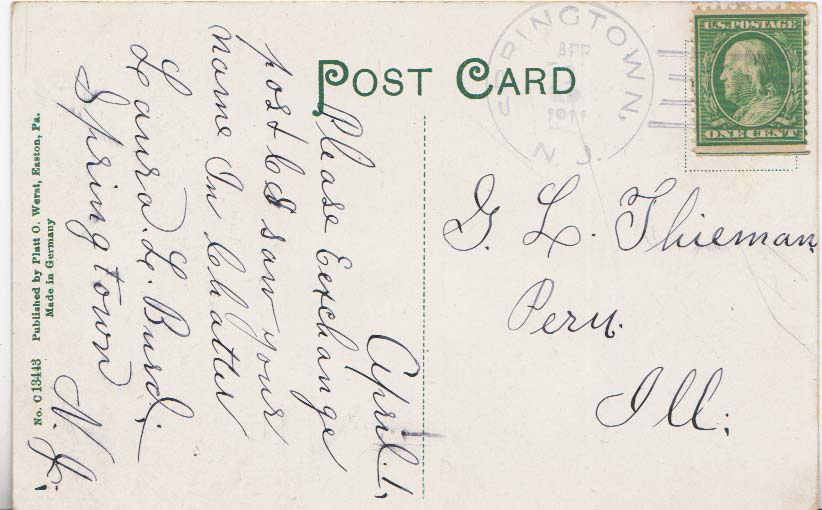 POST CARD
SPRINGTOWN,
APR
1911
N. J.
U.S. POSTAGE
ONE CENT
G. L. Thieman
Peru.
Ill.
April. 1,
Please Eexchange
post Cd saw your
name In Chatter
Laura. L. Burd,
Springtown N. J.
No. C 13443 Published by Platt O. Werst, Easton, Pa.
Made in Germany